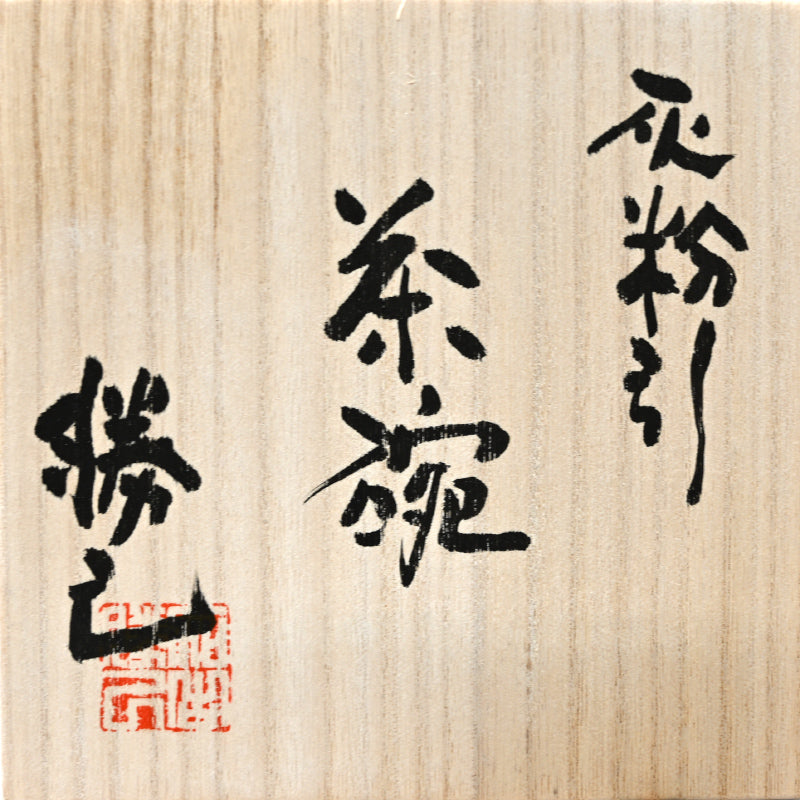 灰粉引
茶碗
勝己